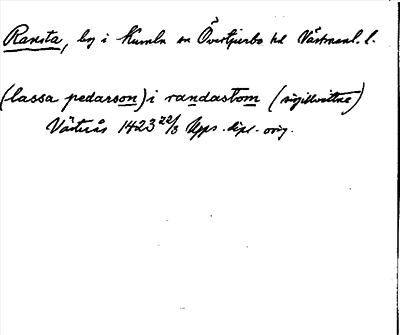 Ransta, by i Kumla sn Övertjurbo hd Västmanl. l.
(lassa pedarson) i randastom (sigillvittne)
Västerås 1423 22/3 Upps. dipl. orig.